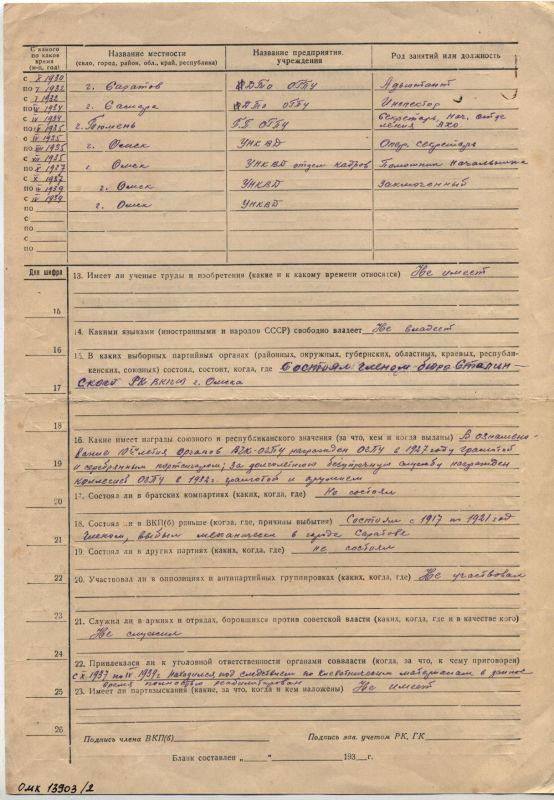 С какого по какое время (м-ц, год)
Название местности
(село, город, район, обл., край, республика)
Название предприятия, учреждения
Род занятий или должность
с X 1930
по I 1932
г. Саратов
ДТО ОГПУ
Адъютант
с I 1932
г. Самара
ДТО ОГПУ
Инспектор
г. Тюмень
ОГПУ
Секретарь, нач. отде
ления АХО
г. Омск
УНКВД
Опер секретарь
г. Омск
УНКВД отдел кадров
Помошник Начальника
по X 1937
с X 1937
по IV 1939
г. Омск
УНКВД
Заключенный
с IV 1939
по
г. Омск
УНКВД
с
по
с
по
Для шифра
13. Имеет ли ученые труды и изобретения (какие и к какому времени относятся) Не имеет
15
14. Какими языками (иностранными и народов СССР) свободно владеет Не владеет
16
15. В каких выборных партийных органах (районных, окружных, губернских, областных, краевых, республи-
канских, союзных) состоял, состоит, когда, где Состоял членом бюро Сталин-
ского РК ВКП(б) г. Омска
17
18
16. Какие имеет награды союзного и республиканского значения (за что, кем и когда выданы) В ознамено-
вание 10ти летия органов ВЧК-ОГПУ награжден ОГПУ в 1927 году грамотой
19
и серебрянным портсигаром; За долголетнюю безупречную службу награжден
коллегией ОГПУ в 1932г. грамотой и оружием
20
17. Состоял ли в братских компартиях (каких, когда, где) Не состоял
18. Состоял ли в ВКП(б) раньше (когда, где, причины выбытия) Состоял с 1917 по 1921 год
членом, выбыл механически в городе Саратове
21
19. Состоял ли в других партиях (каких, когда, где) не состоял
22
20. Участвовал ли в оппозициях и антипартийных группировках (каких, когда, где) Не участвовал
23
21. Служил ли в армиях и отрядах, боровшихся против советской власти (каких, когда, где и в качестве кого)
Не служил
24
22. Привлекался ли к уголовной ответственности органами соввласти (когда, за что, к чему приговорен)
с X 1937 по IV 1939г. находился под следствием по клеветническим материалам в данное
время полностью реабилитирован
25
23. Имеет ли партвзыскания (какие, за что, когда и кем наложены) Не имеет
26
Подпись члена ВКП(б)
Подпись зав. учетом РК, ГК
Бланк составлен „ “ 193 г.
ОМК 13903/2